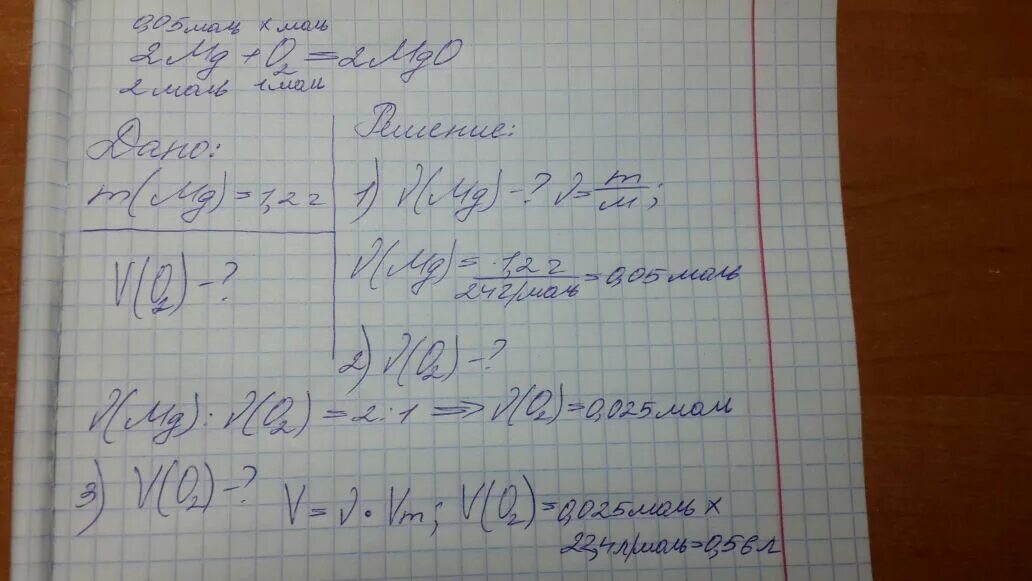 0,05 моль x моль
2Mg + O₂ = 2MgO
2 моль 1 моль
Дано:
m(Mg) = 1,2 г
V(O₂) - ?
Решение:
1) ν(Mg) - ? ν = m/M;
ν(Mg) = 1,2 г / 24 г/моль = 0,05 моль
2) ν(O₂) - ?
ν(Mg) : ν(O₂) = 2:1 ⇒ ν(O₂) = 0,025 моль
3) V(O₂) - ? V = ν · Vm; V(O₂) = 0,025 моль x
22,4 л/моль = 0,56 л